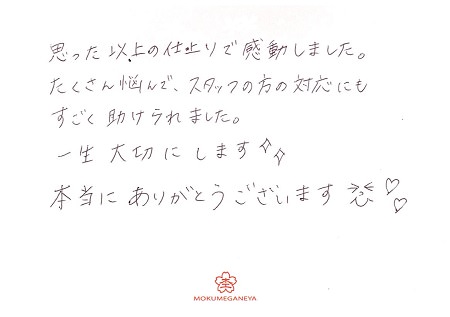 思った以上の仕上りで感動しました。
たくさん悩んで、スタッフの方の対応にも
すごく助けられました。
一生大切にします
本当にありがとうございます
MOKUMEGANEYA